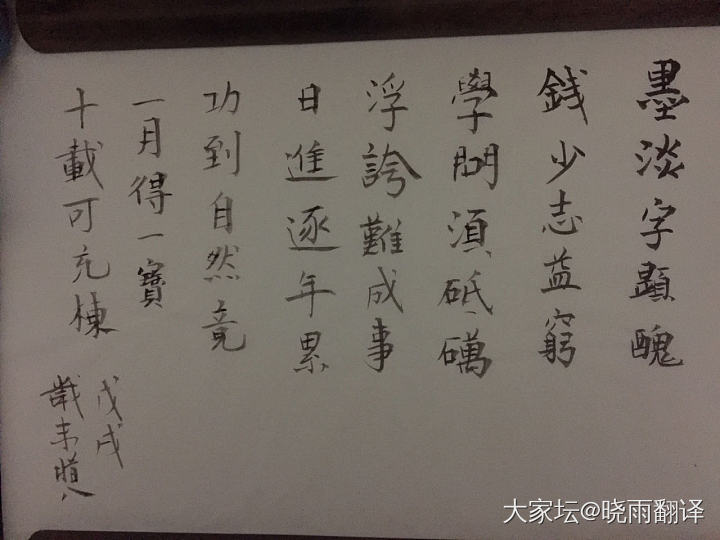 墨淡字顯醜
錢少志益窮
學問須砥礪
浮誇難成事
日進逐年累
功到自然竟
一月得一寶
十載可充棟
戊戌
歲末
大家坛@晓雨翻译